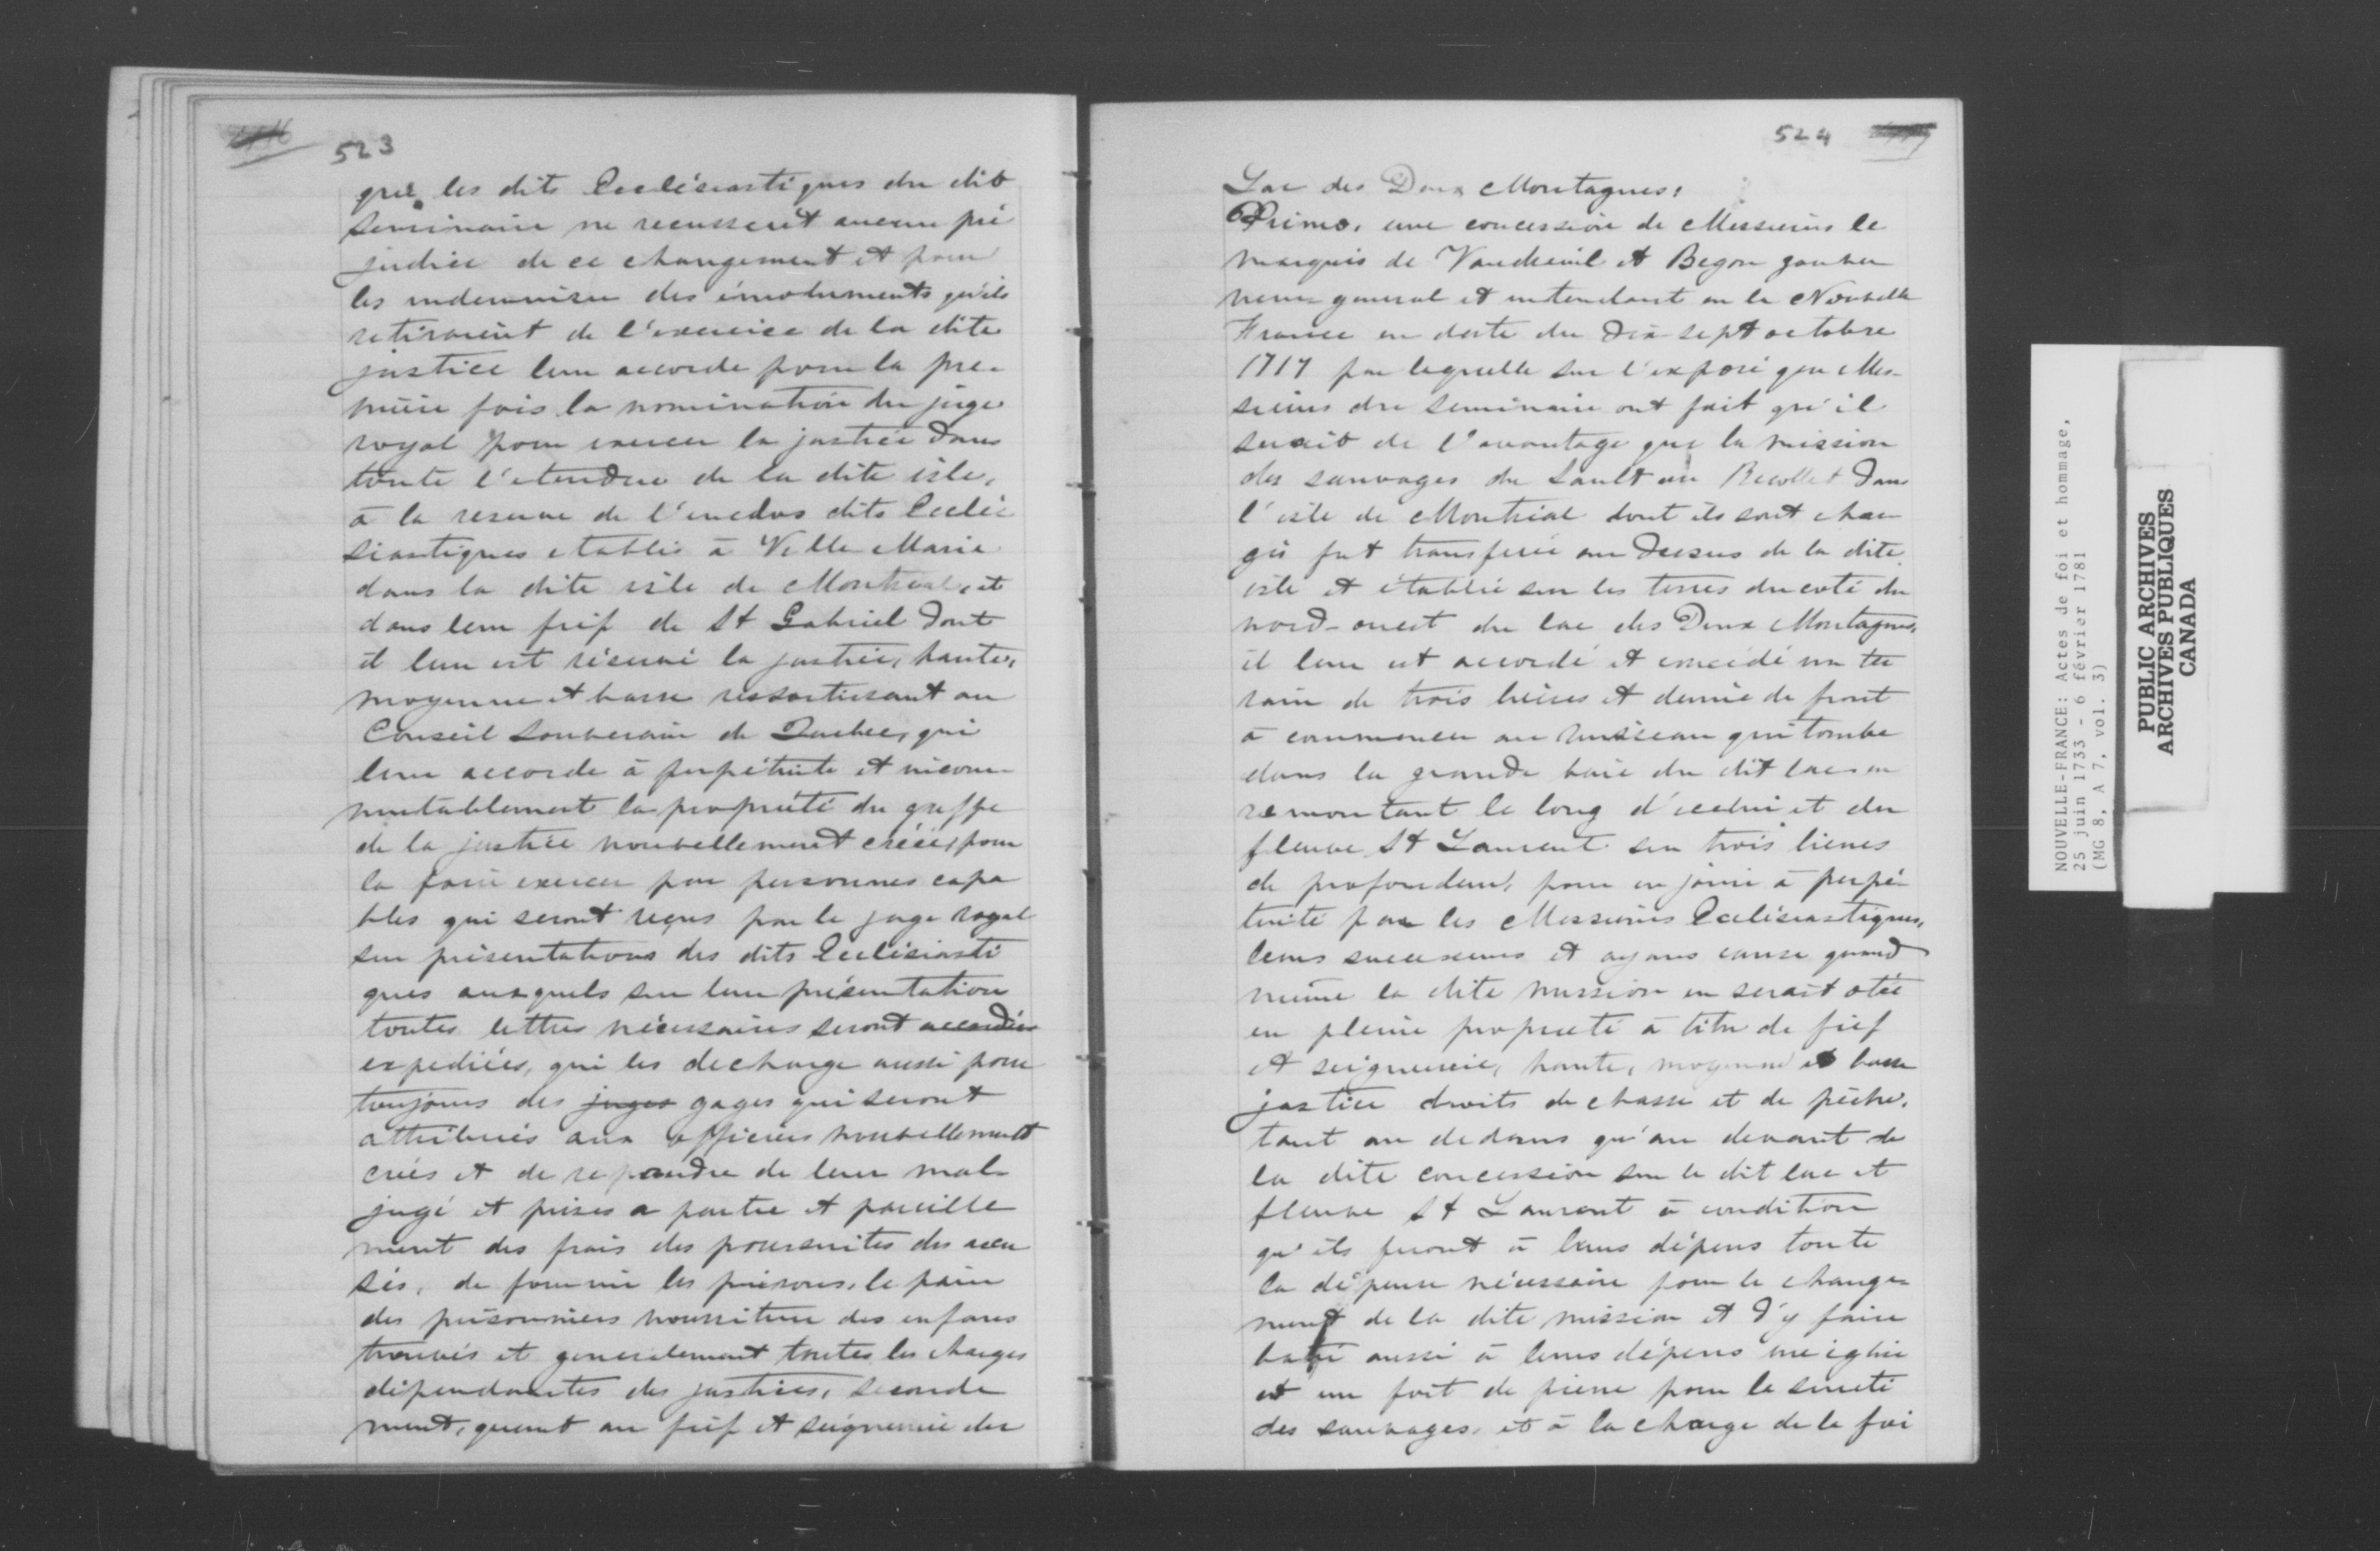 523
que les dits Ecclésiastiques du dit
Seminaire ne reçusserît aucun pré
judice de ce changement et pour
les indemniser des émoluments qu'ils
retiraient de l'exercice de la dite
justice leur accorde pour la pre-
mière fois la nomination du juge
royal pour exercer la justice dans
toute l'etendue de la dite isle,
à la reserve de l'enclos dits Ecclé
siastiques etablis à Ville Marie
dans la dite isle de Montreal, et
dans leur fief de St Gabriel dont
il leur est réservé la justice, haute,
moyenne et basse ressortissant au
Conseil Souverain de Quebec, qui
leur accorde à perpétuité et incom-
mutablement la propriété du greffe
de la justice nouvellement créée, pour
la faire exercer par personnes capa
bles qui seront reçus par le juge royal
sur présentations des dits Ecclésiasti
ques auxquels sur leur présentation
toutes lettres nécessaires seront accordées
expediées, qui les decharge aussi pour
toujours des juges gages qui seront
attribués aux officiers nouvellement
créés et de repondre de leur mal
jugé et prises a partie et pareille
ment des frais des poursuites des accu
sés, de fournir les prisons, le pain
des prisonniers nourriture des enfans
trouvés et generalement toutes les charges
dépendantes des justices, seconde
ment, quant au fief et seigneurie du
524
Lac des Deux Montagnes:
Primo, une concession de Messieurs le
marquis de Vaudreuil et Begon gouver
neur general et intendant en la Nouvelle
France en date du dix-sept octobre
1717 par laquelle sur l'exposé que Mes-
sieurs du Seminaire ont fait qu'il
serait de l'avantage que la mission
des sauvages du Sault au Recollet dans
l'isle de Montréal dont ils sont char
gés fut transferée au dessus de la dite
isle et établie sur les terres du coté du
nord-ouest du lac des Deux Montagnes,
il leur est accordé et concédé un ter
rain de trois lieues et demie de front
à commencer au ruisseau qui tombe
dans la grande baie du dit lac en
remontant le long d'icelui et du
fleuve St Laurent sur trois lieues
de profondeur, pour en jouir à perpé-
tuité par les Messieurs Ecclésiastiques,
leurs successeurs et ayans cause quand
même la dite mission en serait otée
en pleine propriété à titre de fief
et seigneurie, haute, moyenne et basse
justice droits de chasse et de pêche,
tant au dedans qu'au devant de
la dite concession sur le dit lac et
fleuve St Laurent à condition
qu'ils feront à leurs dépens toute
la dépense nécessaire pour le change-
ment de la dite mission et d'y faire
batir aussi à leurs dépens une eglise
et un fort de pierre pour la sureté
des sauvages, et à la charge de la foi
NOUVELLE-FRANCE: Actes de foi et hommage,
25 juin 1733 - 6 février 1781
(MG 8, A 7, vol. 3)
PUBLIC ARCHIVES
ARCHIVES PUBLIQUES
CANADA